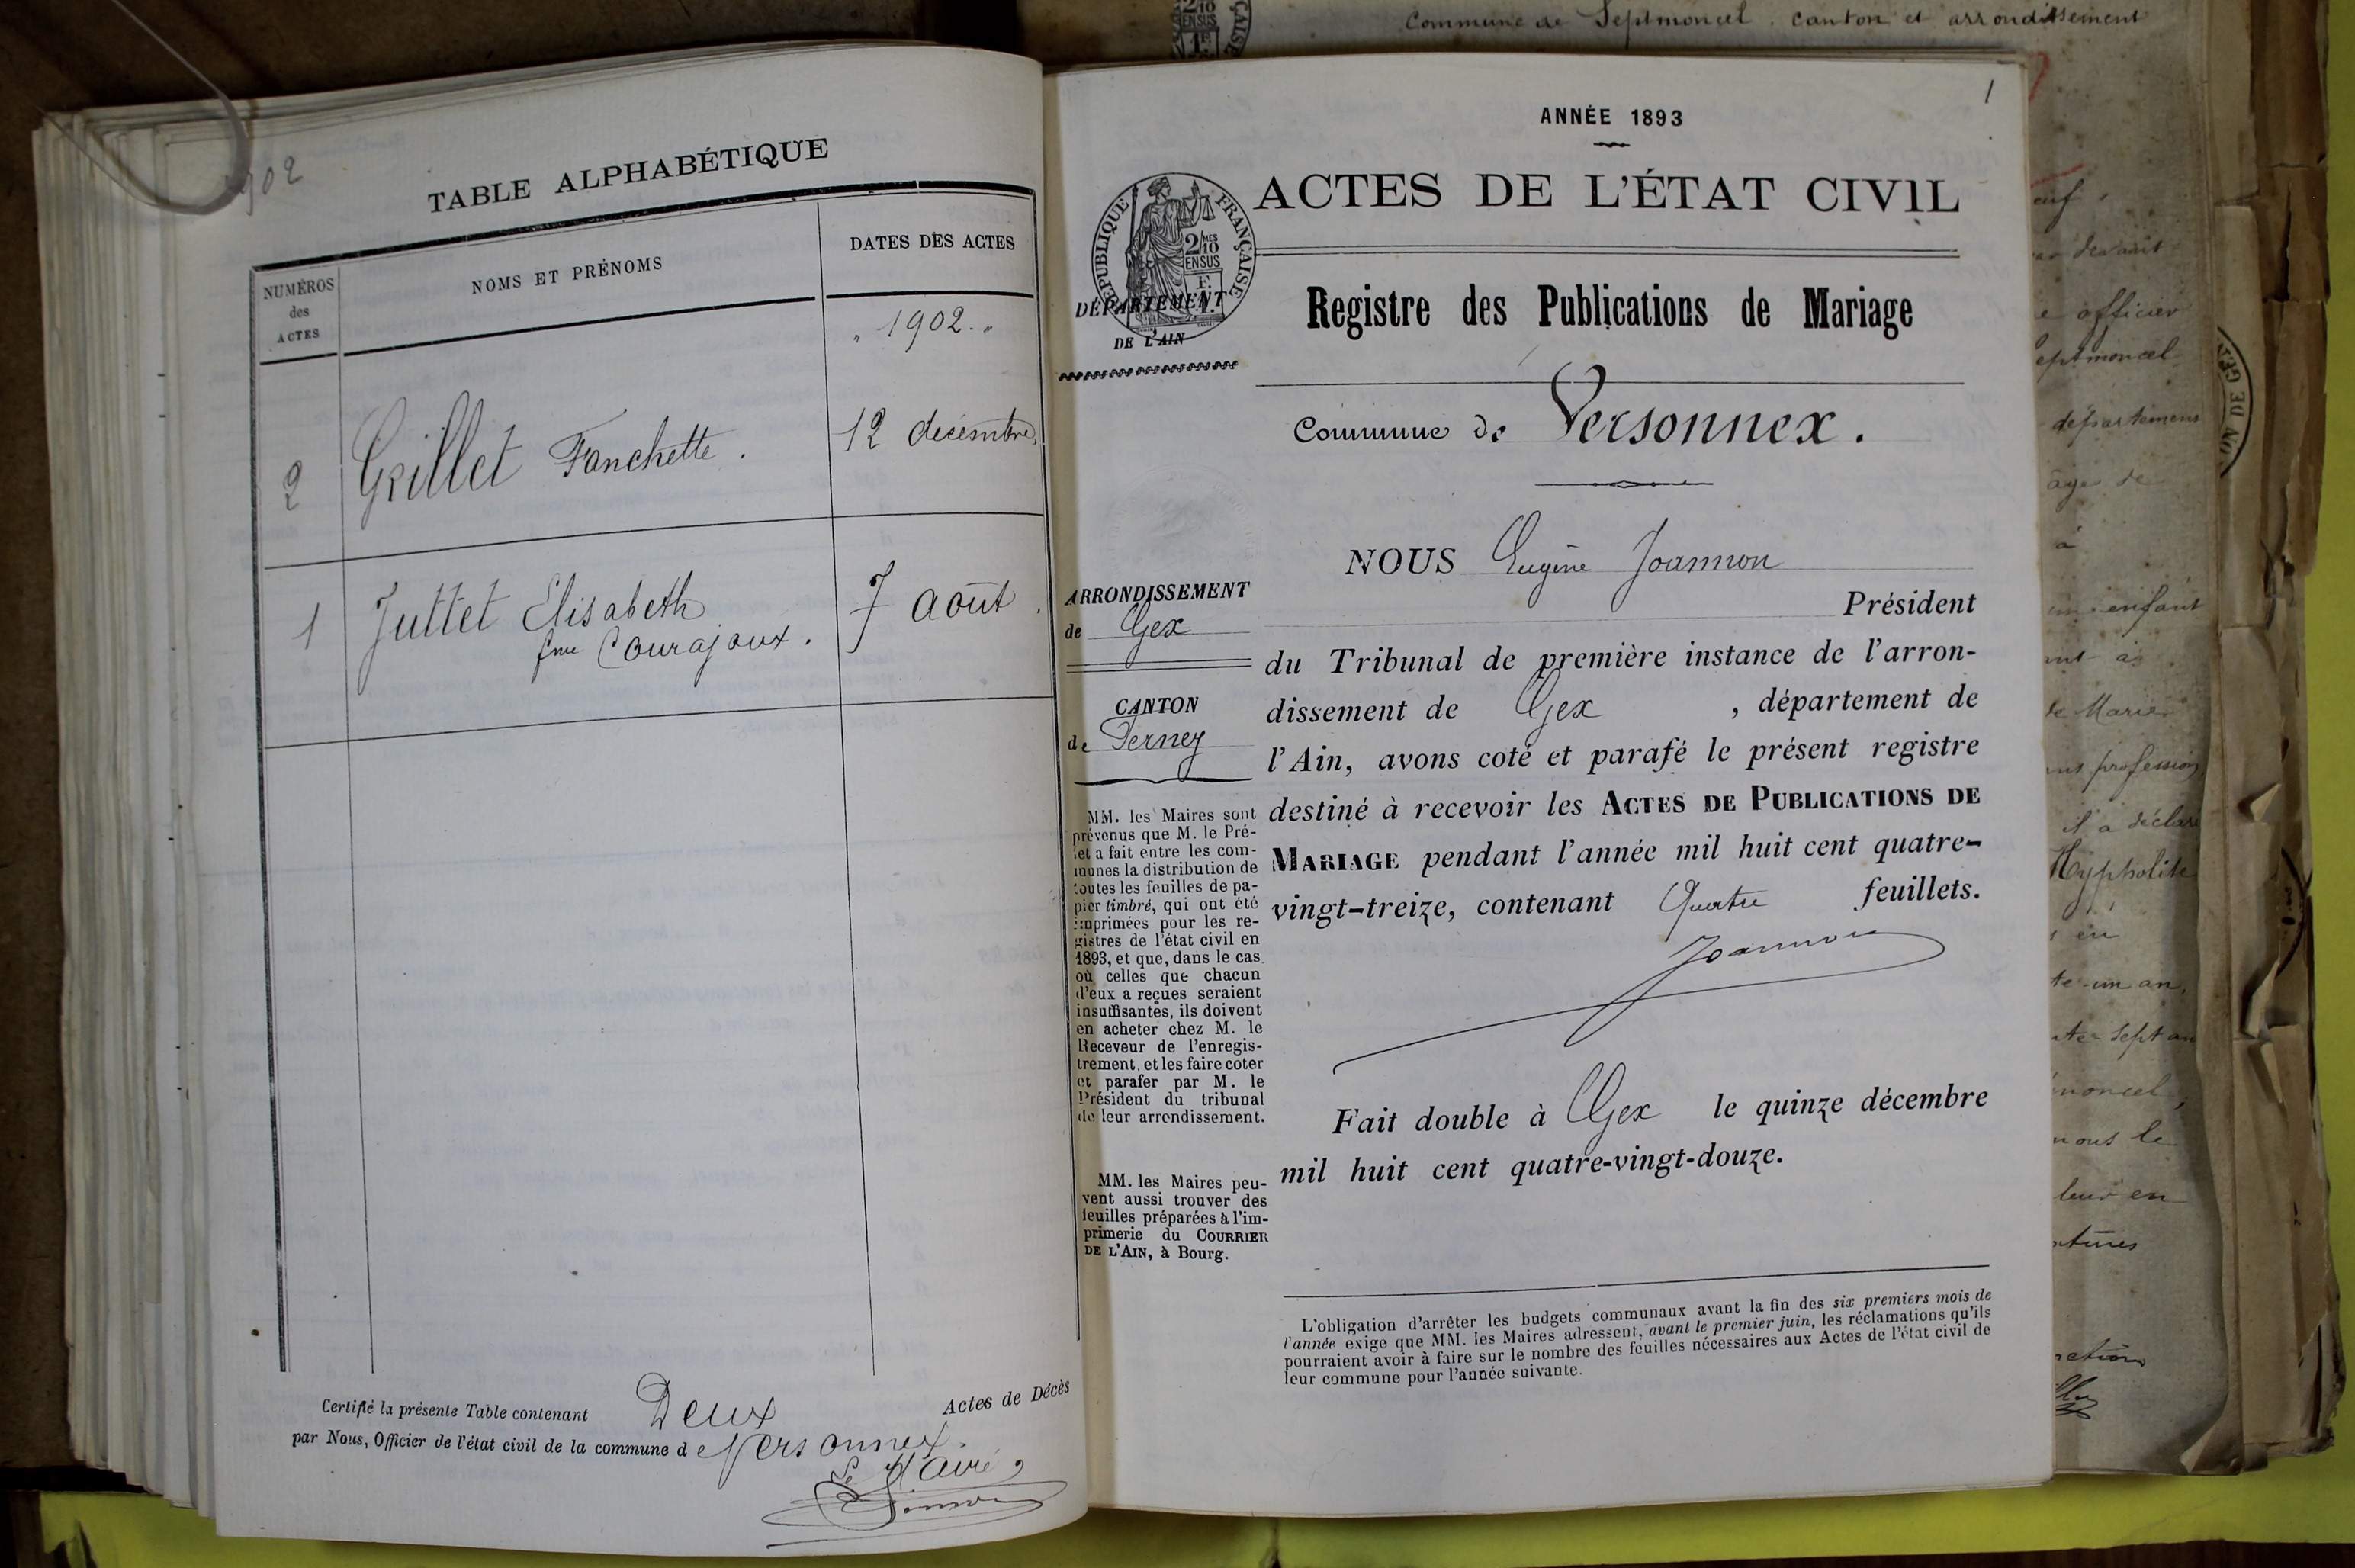 1902
TABLE ALPHABÉTIQUE
NUMÉROS
des
ACTES
NOMS ET PRÉNOMS
DATES DES ACTES
" 1902. "
2 Grillet Fanchette . 12 décembre.
1 Juttet Elisabeth 7 août .
fme Courajoux .
Certifié la présente Table contenant Deux Actes de Décès
par Nous, Officier de l'état civil de la commune de Versonnex.
Le Maire,
1
ANNÉE 1893
ACTES DE L'ÉTAT CIVIL
RÉPUBLIQUE FRANÇAISE
2/10 MES
EN SUS
DÉPARTEMENT
DE L'AIN
Registre des Publications de Mariage
Commune de Versonnex.
NOUS Eugène Joannon
Président
ARRONDISSEMENT
de Gex
CANTON
de Ferney
du Tribunal de première instance de l'arron-
dissement de Gex , département de
l'Ain, avons coté et parafé le présent registre
destiné à recevoir les ACTES DE PUBLICATIONS DE
MARIAGE pendant l'année mil huit cent quatre-
vingt-treize, contenant Quatre feuillets.
Joannon
Fait double à Gex le quinze décembre
mil huit cent quatre-vingt-douze.
MM. les Maires sont
prévenus que M. le Pré-
fet a fait entre les com-
munes la distribution de
toutes les feuilles de pa-
pier timbré, qui ont été
imprimées pour les re-
gistres de l'état civil en
1893, et que, dans le cas
où celles que chacun
d'eux a reçues seraient
insuffisantes, ils doivent
en acheter chez M. le
Receveur de l'enregis-
trement, et les faire coter
et parafer par M. le
Président du tribunal
de leur arrondissement.
MM. les Maires peu-
vent aussi trouver des
feuilles préparées à l'im-
primerie du COURRIER
DE L'AIN, à Bourg.
L'obligation d'arrêter les budgets communaux avant la fin des six premiers mois de
l'année exige que MM. les Maires adressent, avant le premier juin, les réclamations qu'ils
pourraient avoir à faire sur le nombre des feuilles nécessaires aux Actes de l'état civil de
leur commune pour l'année suivante.
Commune de Septmoncel . canton et arrondissement
devant
officier
eptmoncel
département
âgé de
à
enfant
Marie
profession
il a déclaré
Hyppolite
en
un an,
sept an
moncel,
nous le
leur en